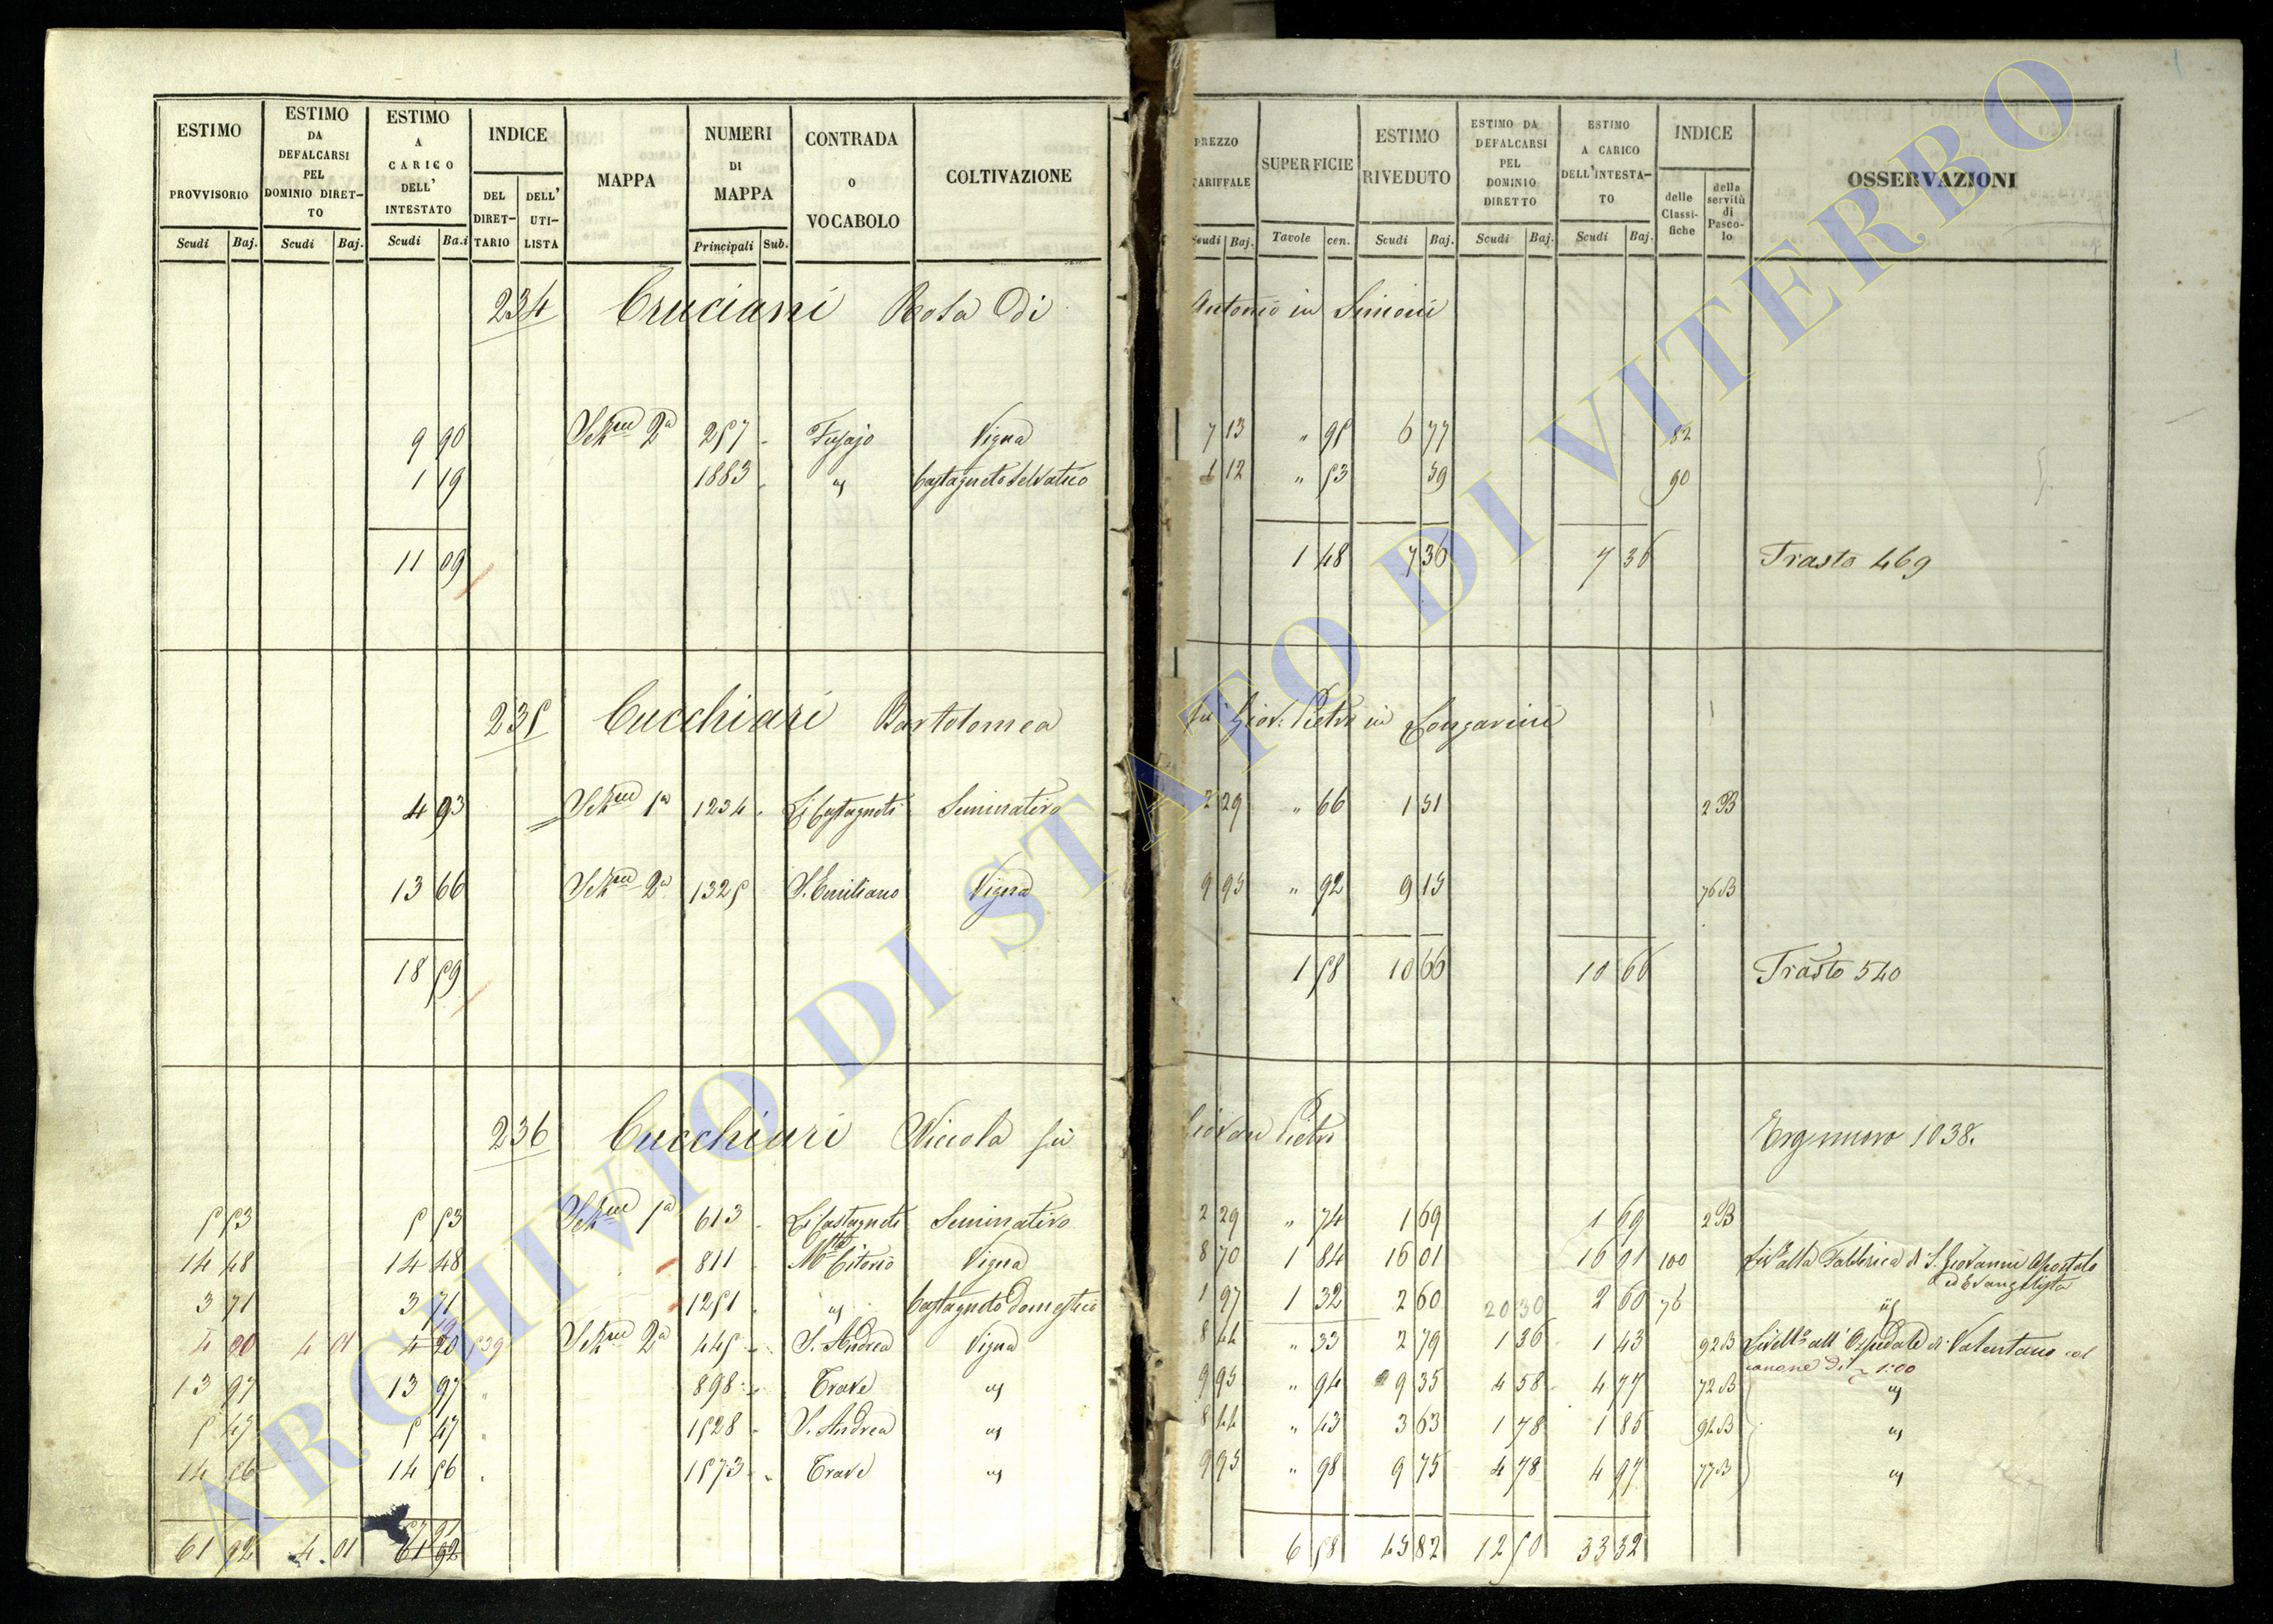 ESTIMO PROVVISORIO Scudi Baj.
ESTIMO DA DEFALCARSI PEL DOMINIO DIRET-TO Scudi Baj.
ESTIMO A CARICO DELL' INTESTATO Scudi Ba.i
INDICE DEL DIRET-TARIO DELL' UTI-LISTA
MAPPA
NUMERI DI MAPPA Principali Sub.
CONTRADA o VOCABOLO
COLTIVAZIONE
PREZZO TARIFFALE Scudi Baj.
SUPERFICIE Tavole cen.
ESTIMO RIVEDUTO Scudi Baj.
ESTIMO DA DEFALCARSI PEL DOMINIO DIRETTO Scudi Baj.
ESTIMO A CARICO DELL'INTESTA-TO Scudi Baj.
INDICE delle Classi-fiche della servitù di Pasco-lo
OSSERVAZIONI
234 Cruciani Rosa Di Antonio in Simoni
9 90 Sez.ne 2a 257 Vigna 7 13 " 95 6 77 82
1 19 1883 " Castagneto Selvatico 1 12 " 53 59 90
11 09 1 48 7 36 7 36 Trasto 469
235 Cucchiari Bartolomea fu Giov: Pietro in Longarini
4 93 Sez.ne 1a 1234 Li Castagneti Seminativo 2 29 " 66 1 51 2 B
13 66 Sez.ne 2a 1325 S. Emiliano Vigna 9 95 " 92 9 15 76 B
18 59 1 58 10 66 10 66 Trasto 540
236 Cucchiari Niccola fu Giovan Pietro 1038.
5 53 5 53 Sez.ne 1a 613 Li Castagneti Seminativo 2 29 " 74 1 69 1 69 2 B
14 48 14 48 811 M.te Citorio Vigna 8 70 1 84 16 01 16 01 100 Liv.o alla Fabbrica di S. Giovanni Apostolo
ed Evangelista
3 71 3 71 1251 " Castagneto domestico 1 97 1 32 2 60 20 30 2 60 76 "
4 20 4 01 4 20 19 539 Sez.ne 2a 445 S. Andrea Vigna 8 44 " 33 2 79 1 36 1 43 92 B Livell.o all'Ospedale di Valentano col
canone di 1:00
13 97 13 97 " 898 Trave " 9 95 " 94 9 35 4 58 4 77 72 B "
5 47 5 47 " 1528 S. Andrea " 8 44 " 43 3 63 1 78 1 85 94 B "
14 56 14 56 " 1573 Trave " 9 95 " 98 9 75 4 78 4 97 77 B "
61 92 4 01 61 92 6 58 45 82 12 50 33 32
ARCHIVIO DI STATO DI VITERBO